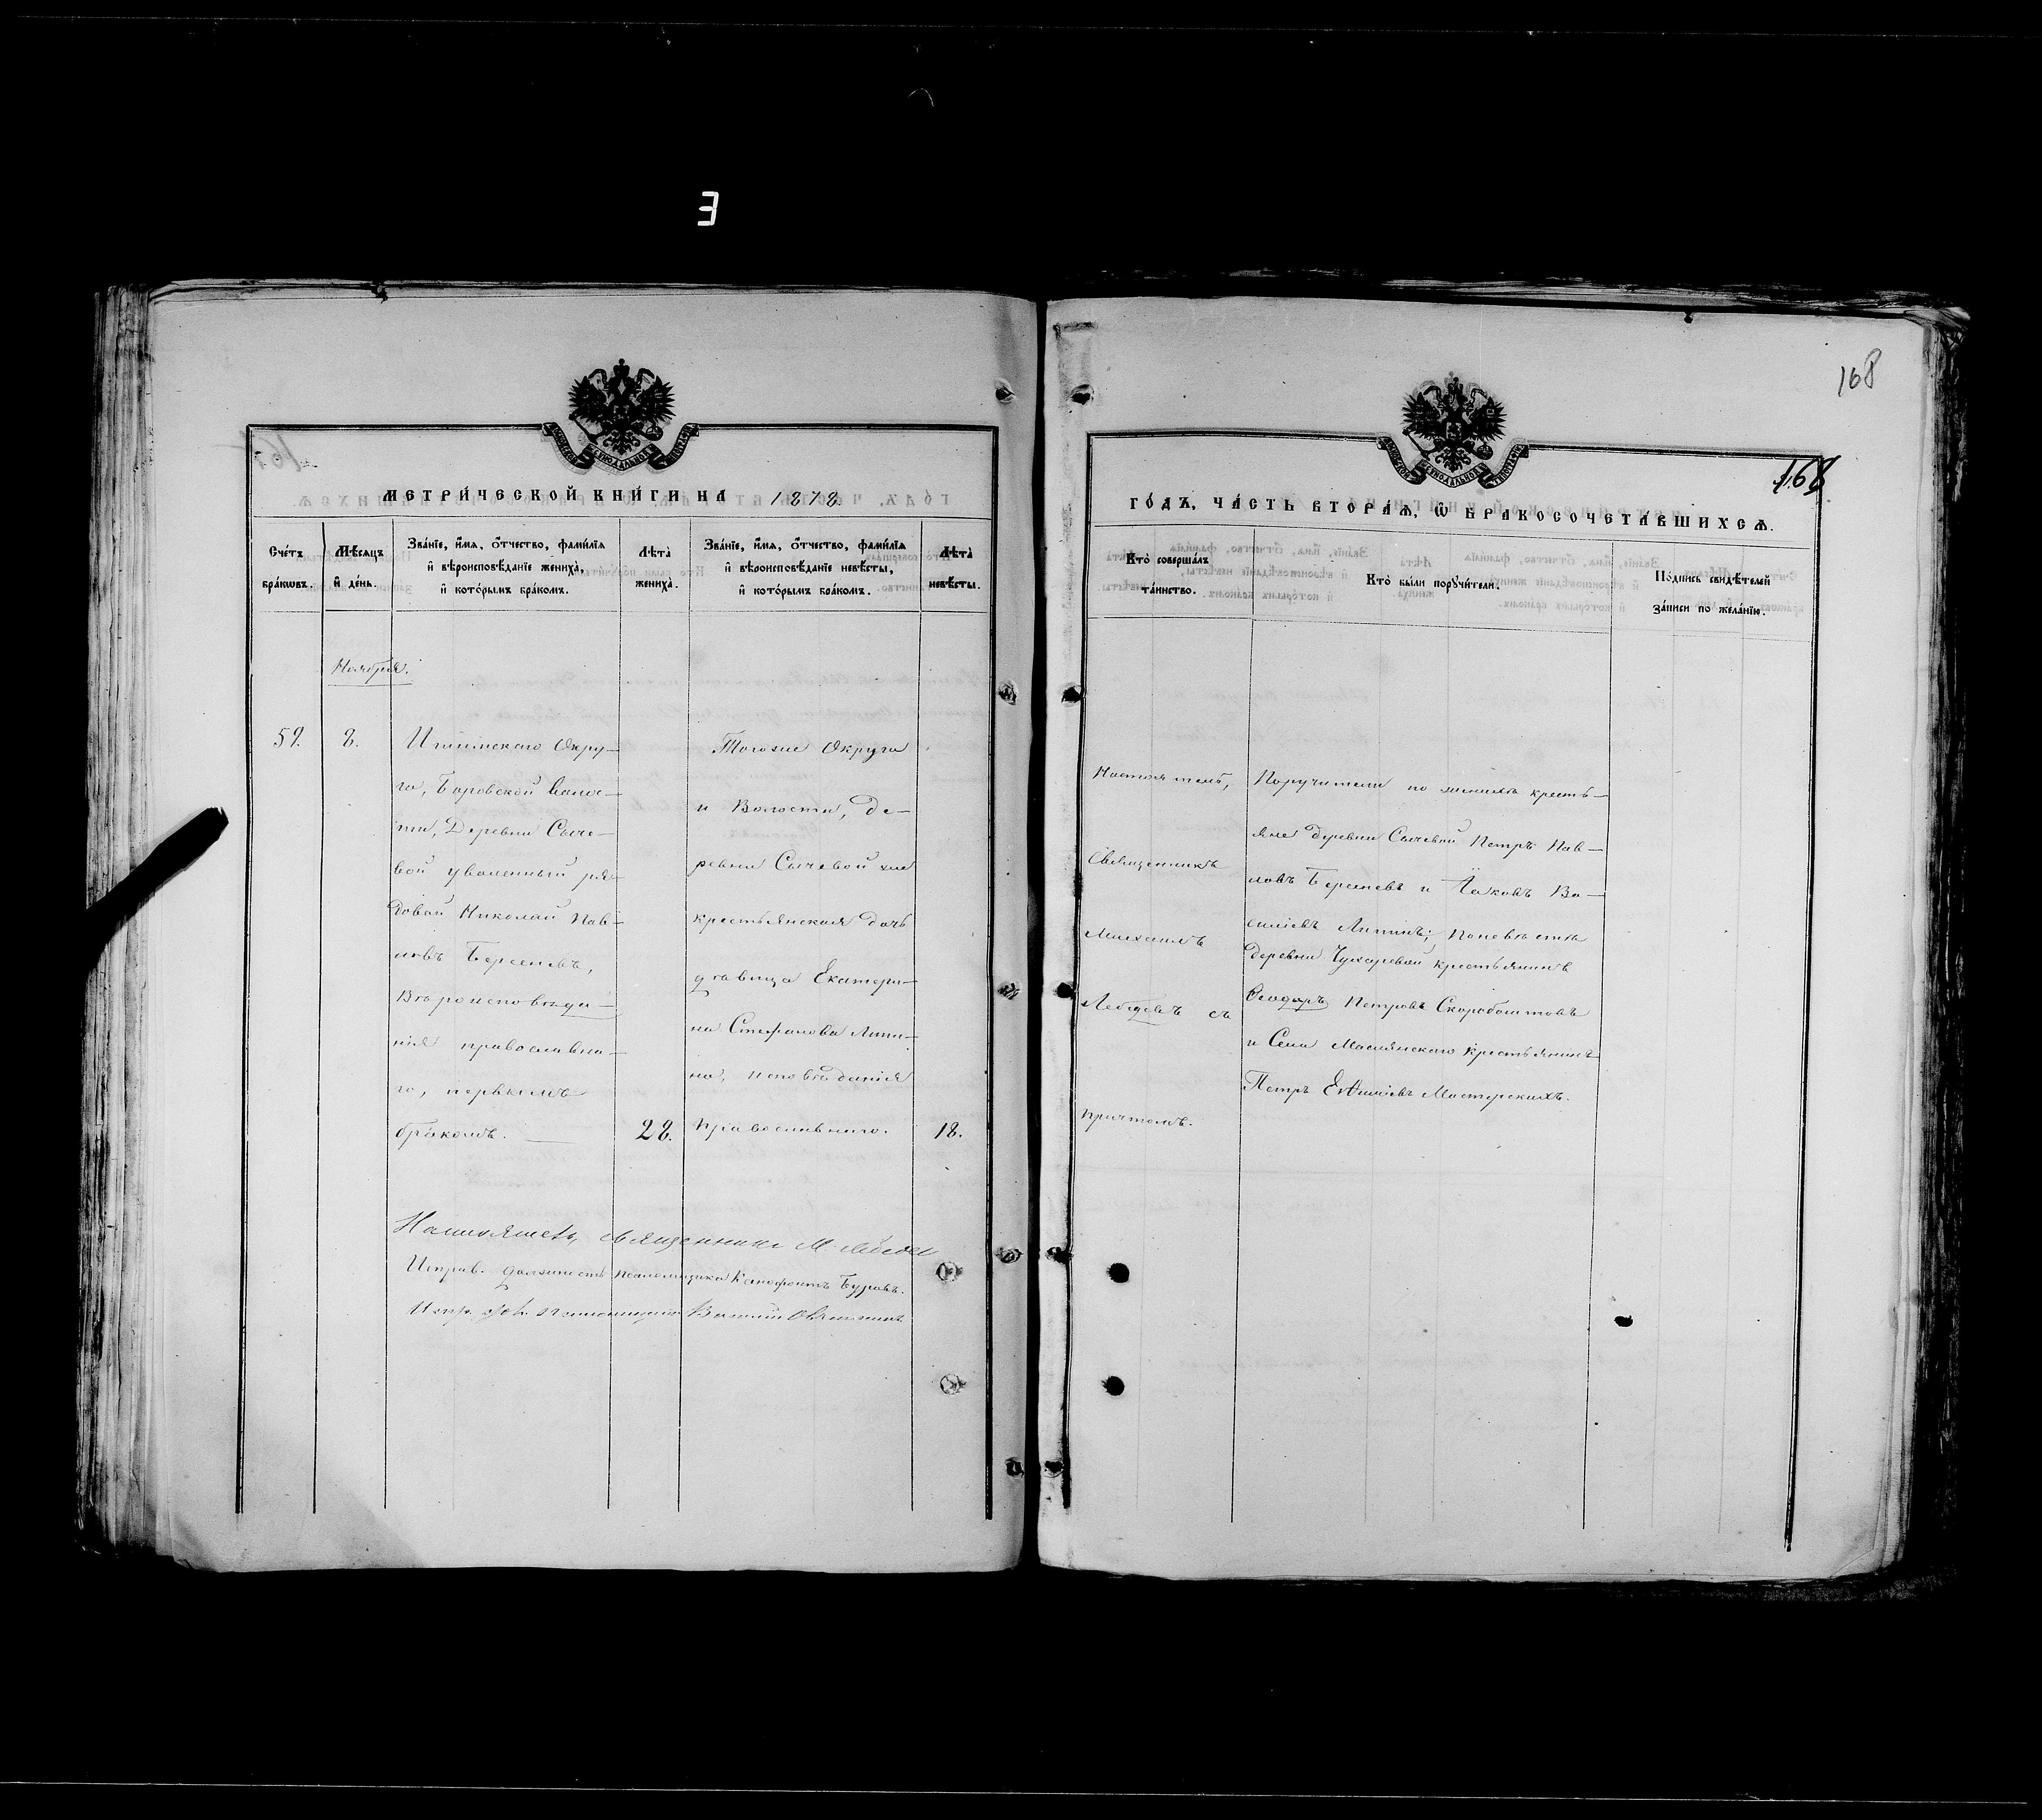 168
168
МЕТРИ́ЧЕСКОЙ КНИ́ГИ НА 1878
ГО́ДЪ, ЧА́СТЬ ВТОРА́Ѧ, Ѽ БРАКОСОЧЕТА́ВШИХСѦ.
Сче́тъ бра́кѡвъ.
Мѣ́сяцъ и҆ де́нь.
Зва́нїе, и҆́мѧ, ѻ҆́тчество, фами́лїѧ
и҆ вѣроисповѣ́данїе жениха̀,
и҆ кото́рымъ бра́комъ.
Лѣта̀ жениха̀.
Зва́нїе, и҆́мѧ, ѻ҆́тчество, фами́лїѧ
и҆ вѣроисповѣ́данїе невѣ́сты,
и҆ кото́рымъ бра́комъ.
Лѣта̀ невѣ́сты.
Кто̀ соверша́лъ
та́инство.
Кто̀ бы́ли порꙋчи́тели.
По́дпись свидѣ́телей
за́писи по жела́нїю.
Ноября.
59.
8.
Ишимскаго Окру-
га, Боровской Волос-
ти, Деревни Сыче-
вой уволенный ря-
довой Николай Пав-
ловъ Берсеневъ,
Вѣроисповѣда-
нія православна-
го, первымъ
бракомъ.
28.
Тогоже Округа
и Волости, де-
ревни Сычевой же
крестьянская дочь
дѣвица Екатери-
на Стефанова Липи-
на, исповѣданія
православнаго.
18.
Настоятель,
Священникъ
Михаилъ
Лебедевъ съ
причтомъ.
Поручители по женихѣ кресть-
яне деревни Сычевой Петръ Пав-
ловъ Берсеневъ и Іаковъ Ва-
силіевъ Липинъ; По невѣстѣ
деревни Чухаревой крестьянинъ
Ѳеодоръ Петровъ Скоробогатовъ
и Села Маслянскаго крестьянинъ
Петръ Мастерскихъ.
Настоятель, священникъ М Лебедев
Исправ. должность псаломщика Ксенофонтъ Буровъ.
Испр. дол. псаломщика Василій